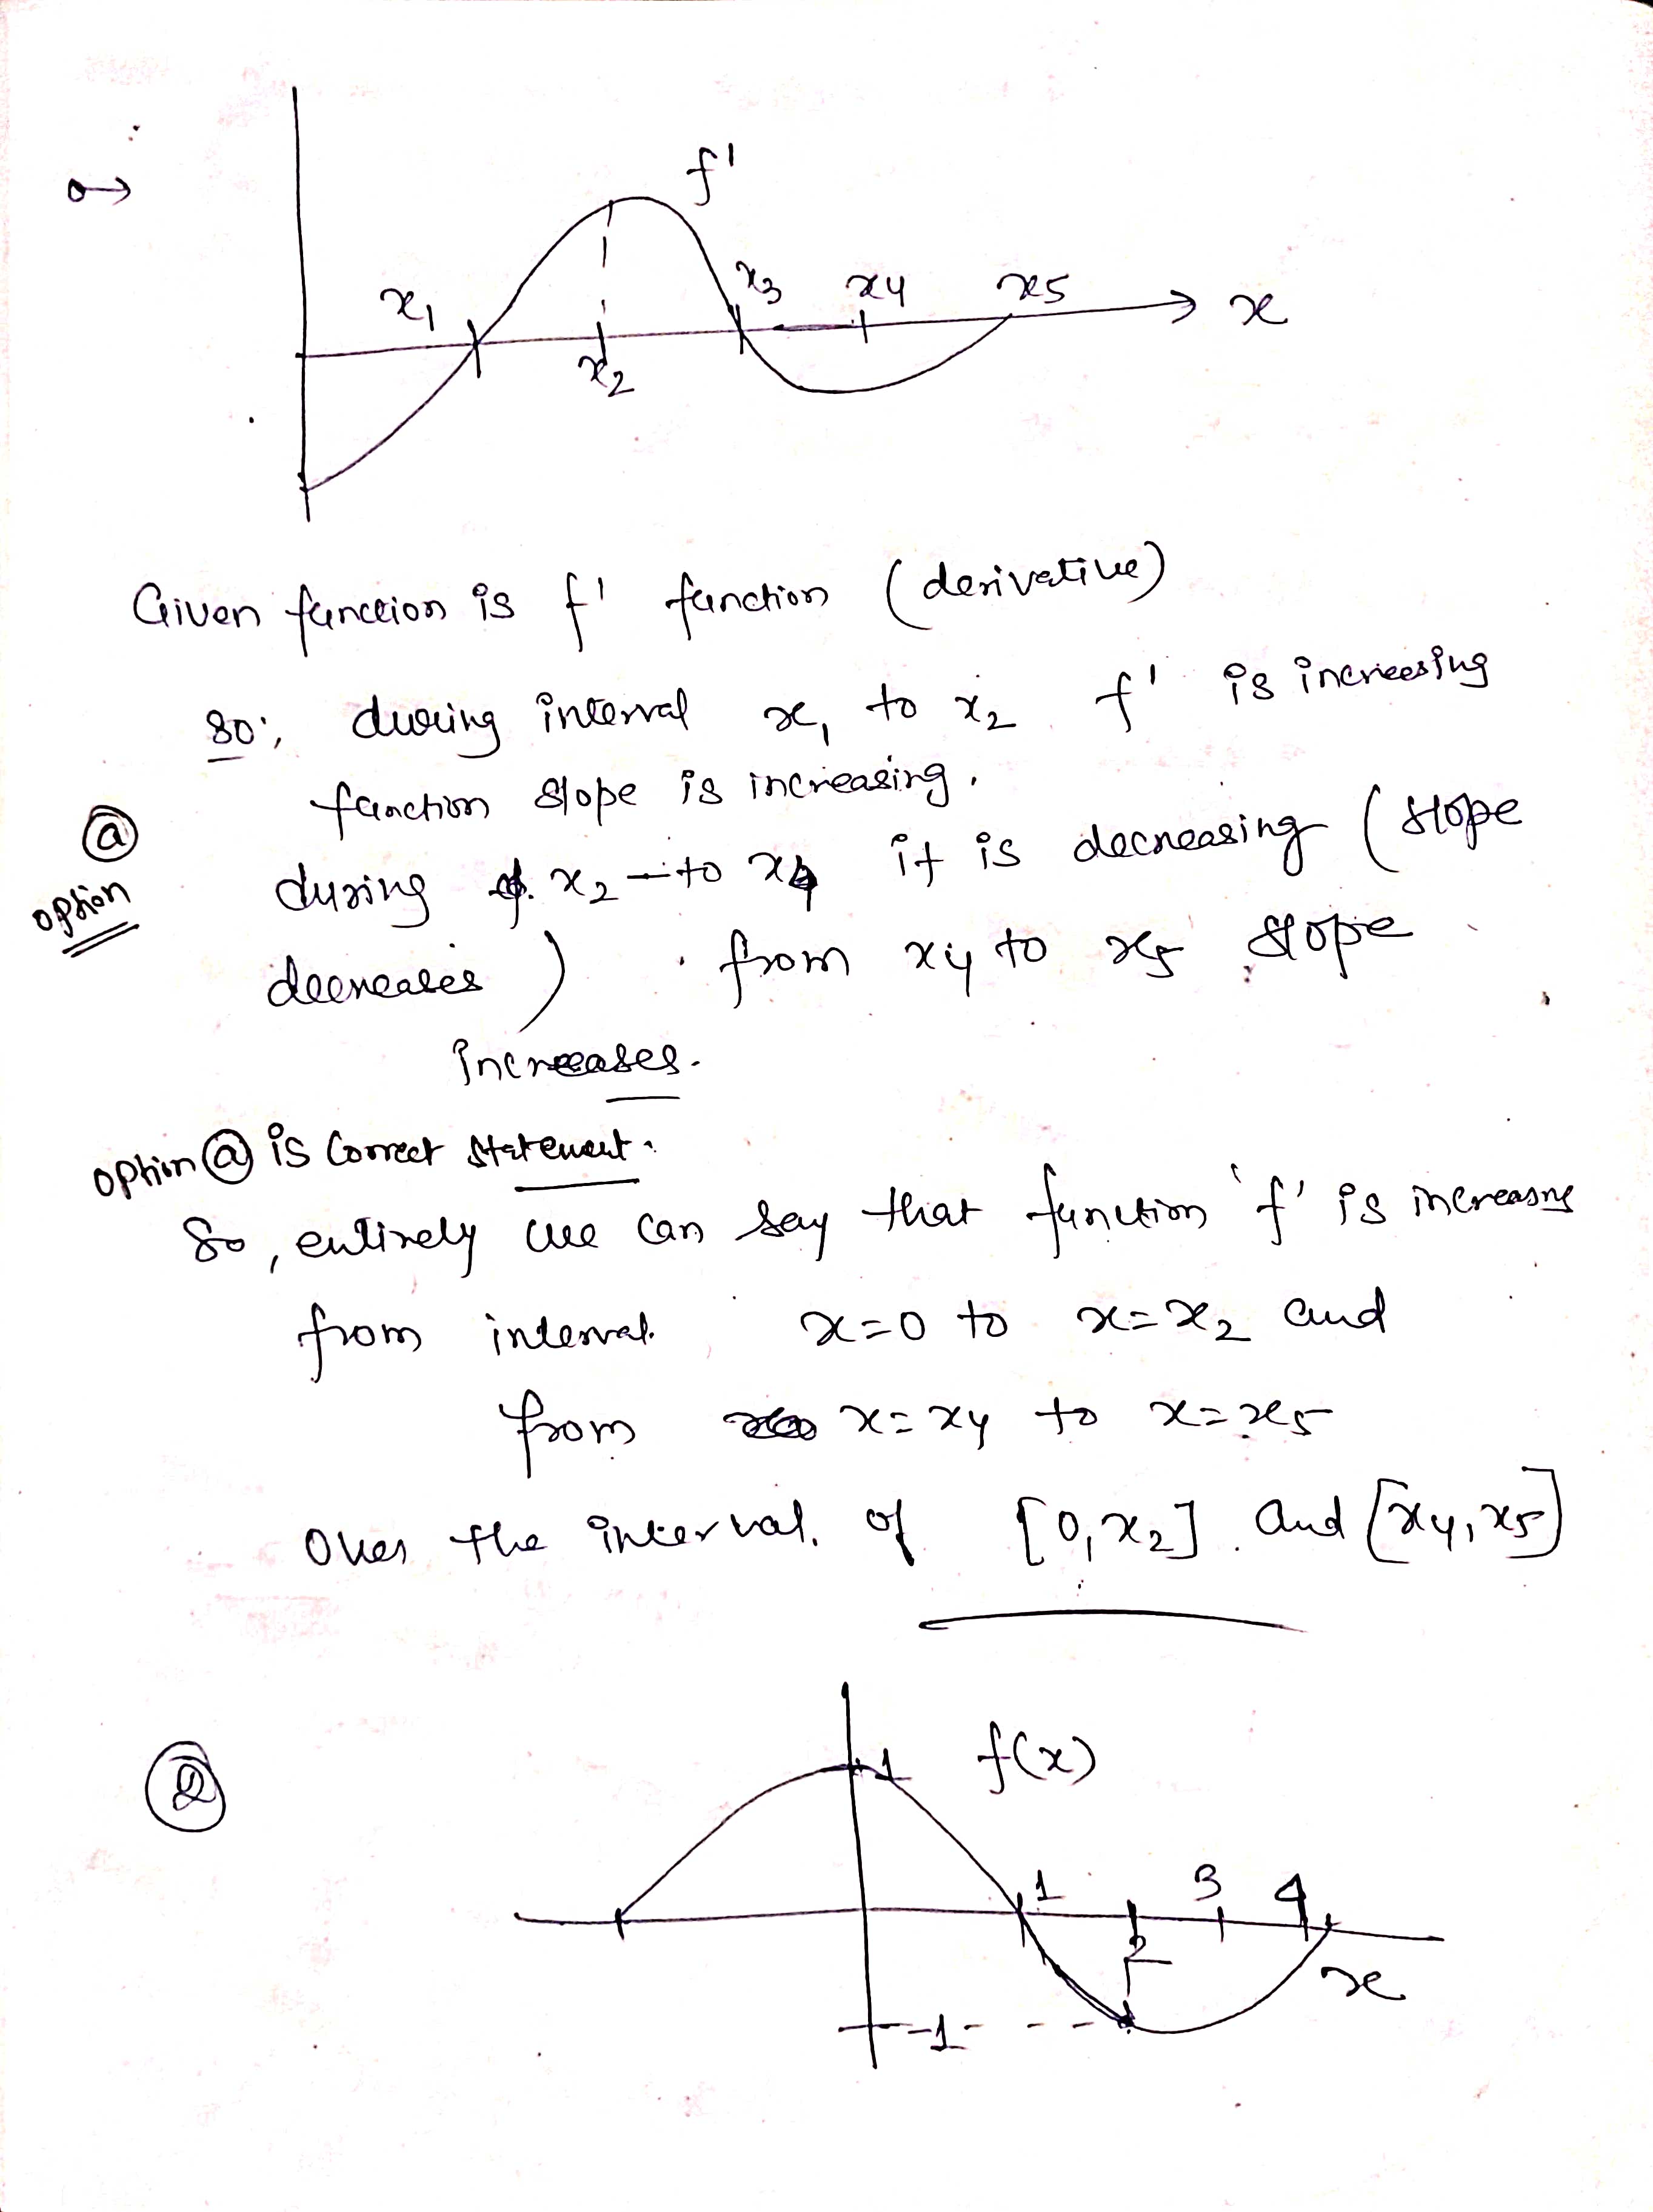 f'
x1 x2 x3 x4 x5 x
Given function is f' function (derivative)
so; during interval x1 to x2 f' is increesing
function slope is increasing.
@ option
during x2 — to x4 it is decreasing (slope
decreases) from x4 to x5 slope
increases.
option @ is Correct statement.
So, entirely we can say that function 'f' is increasing
from interval x=0 to x=x2 and
from x=x4 to x=x5
Over the interval of [0,x2] and [x4,x5]
②
f(x)
1
1 2 3 4
x
-1